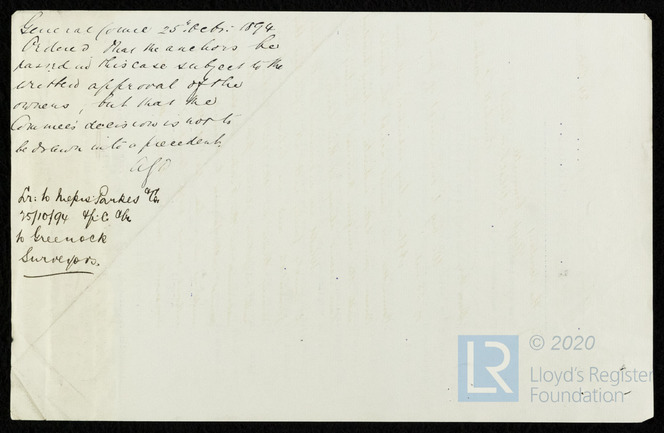 General Comee 25th Octr: 1894
Ordered that the anchors be
passed in this case subject to the
written approval of the
owners, but that the
Commee's decision is not to
be drawn into a precedent.
Lr: to Messrs Parkes & Co.
25/10/94 & C
to Greenock
Surveyors.
© 2020
LR
Lloyd's Register
Foundation